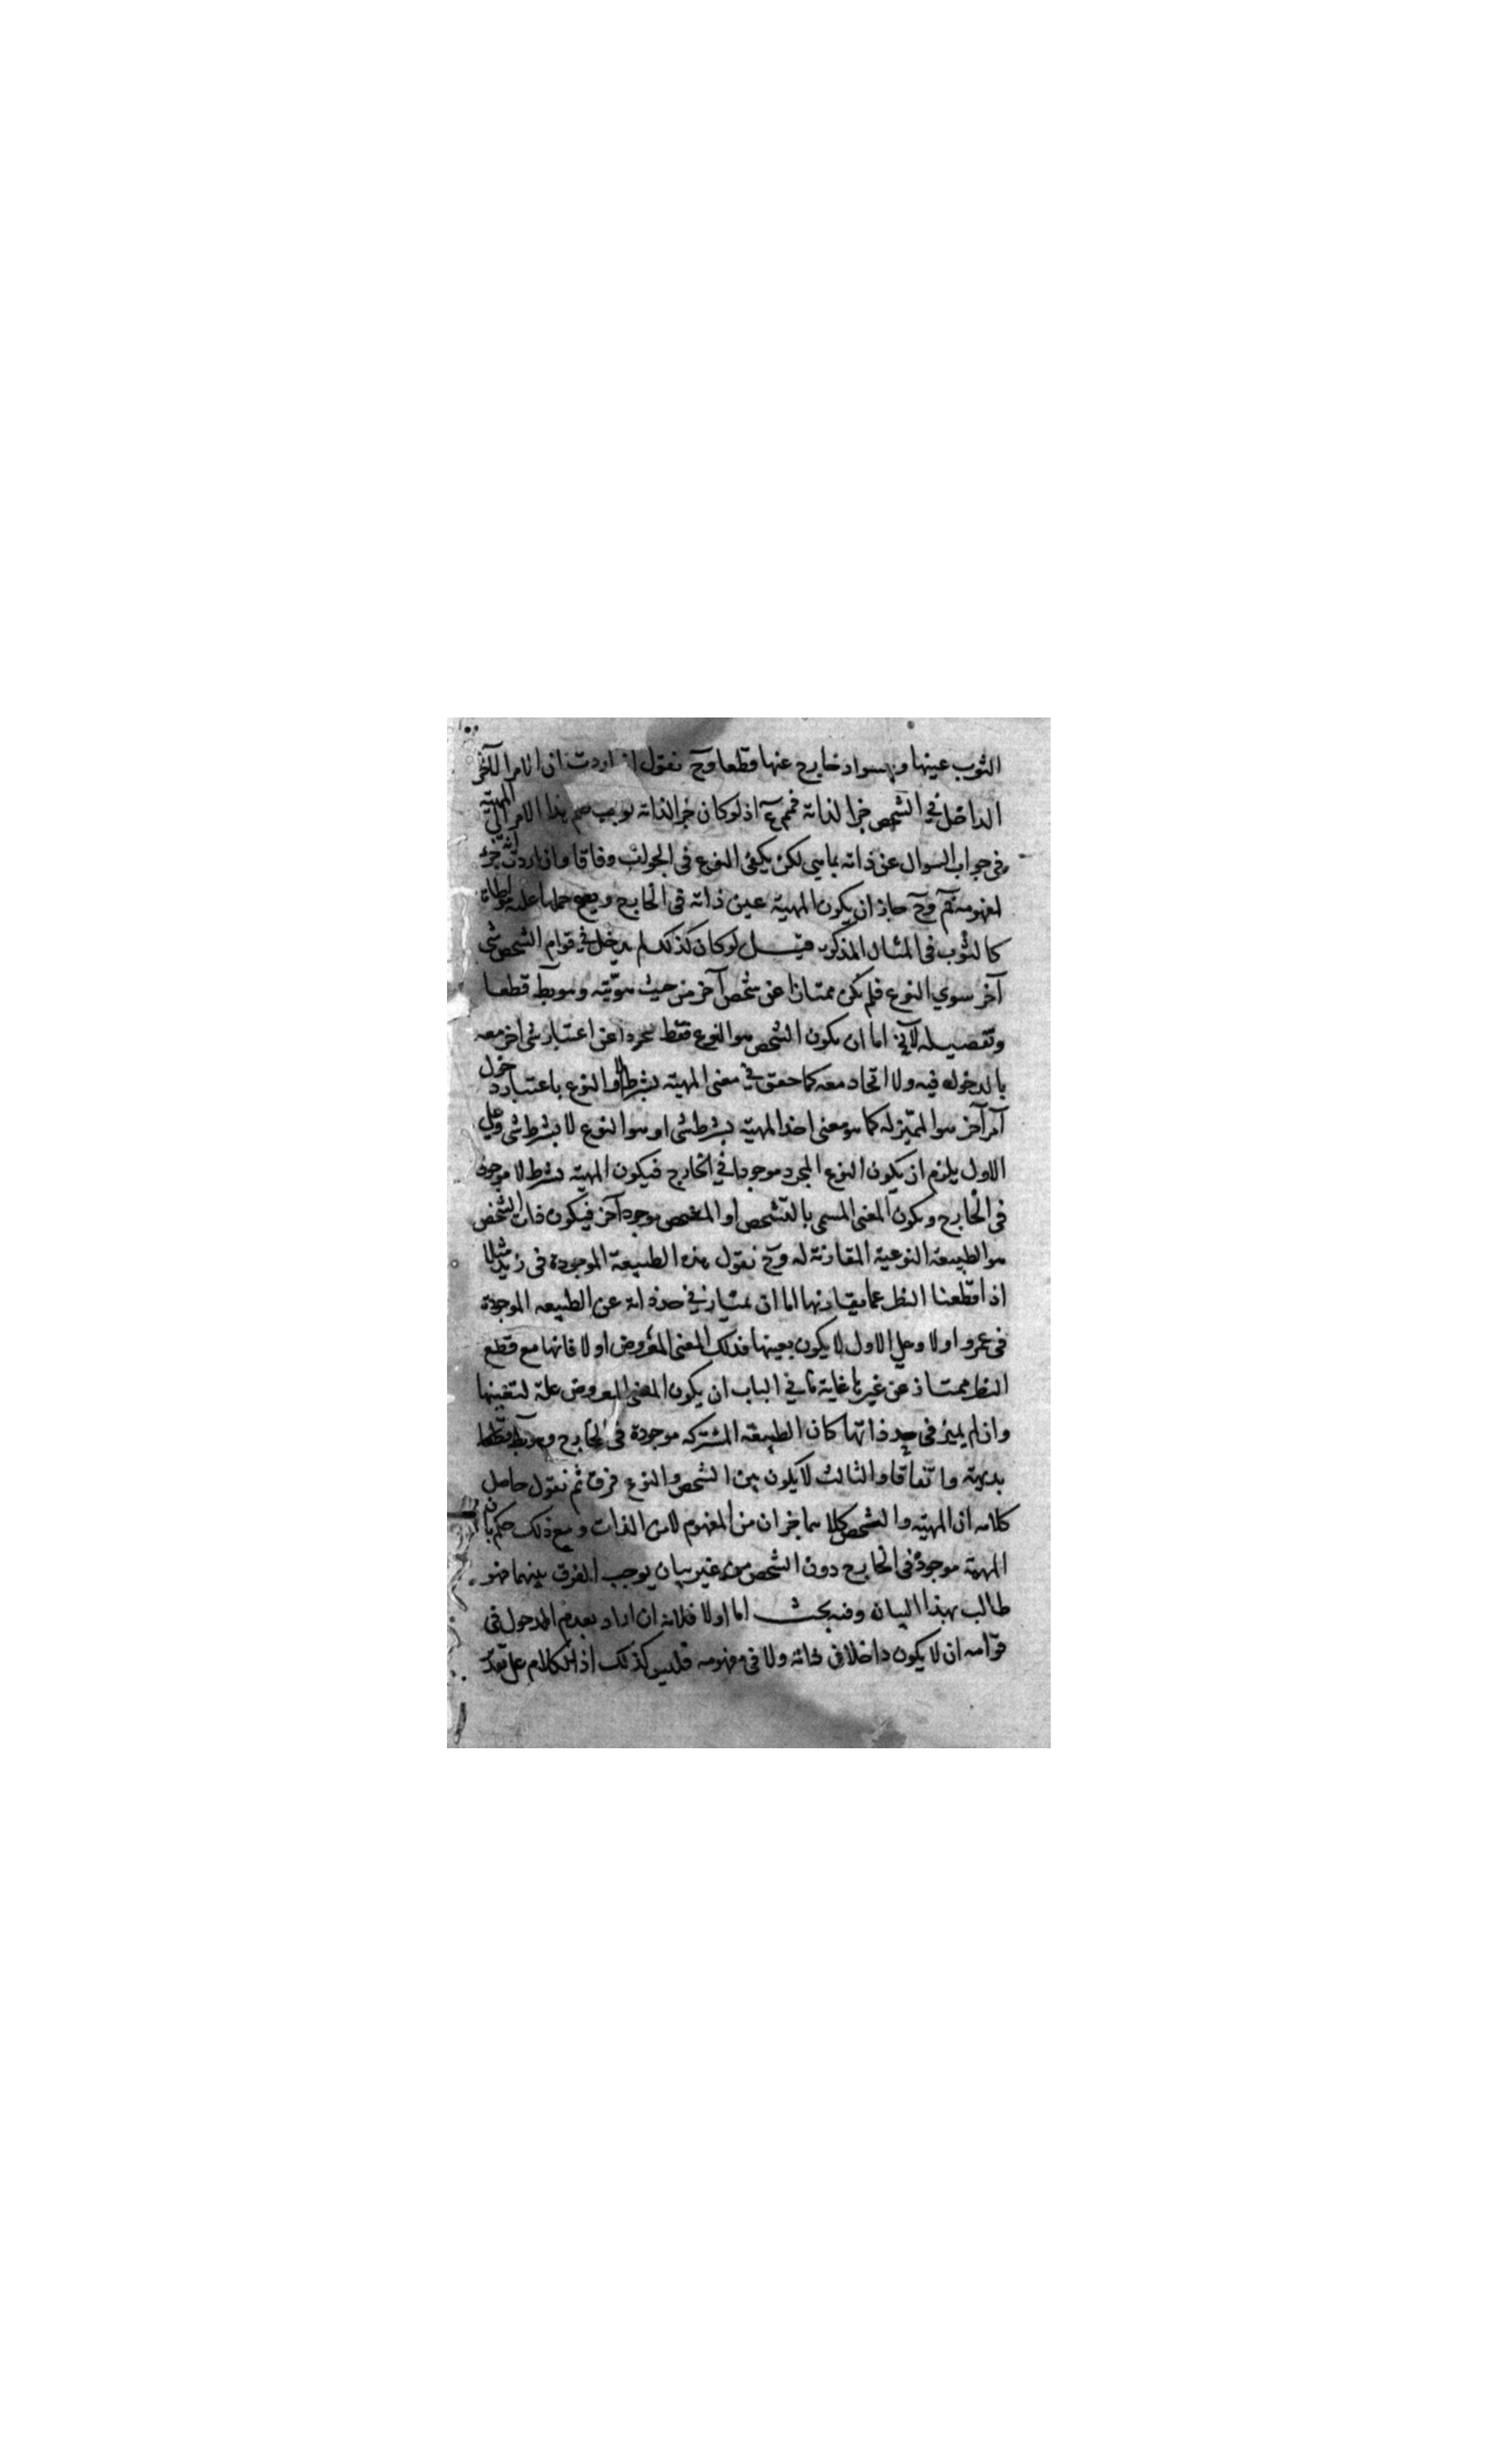 الثوب عينها والسواد خارج عنها قطعا وح نقول ان اردت ان الامر الآخر
الداخل في الشخص جزا لذاته فمم آذ لوكان جزا لذاته لوجب ضم هذا الامر الى المهية
في جواب السوال عن ذاته بما هي لكن يكفى النوع فى الجواب وفاقا وان اردت انه جزء
لمفهومه فم وح جاز ان يكون المهية عين ذاته فى الخارج ويصح حملها عليه مواطاة
كالثوب فى المثال المذكور قيل لو كان كذلك لم يدخل في قوام الشخص شى
آخر سوي النوع فلم يكن ممتازا عن شخص آخر من حيث هويته وهو بط قطعا
وتفصيله لآنخ اما ان يكون الشخص هو النوع فقط مجردا عن اعتبار شى اخر معه
بالدخول فيه ولا اتحاد معه كما حقق في معنى المهية بشرط لا او النوع باعتبار دخول
آمر آخر هو المميز له كما هو معنى اخذ المهية بشرط شى او هو النوع لا بشرط شى وعلى
الاول يلزم ان يكون النوع المجرد موجودا في الخارج فيكون المهية بشرط لا موجودة
فى الخارج ويكون المعنى المسمى بالتشخص او المشخص موجود آخر فيكون ذات الشخص
هو الطبيعة النوعية المقارنة له وح نقول هذه الطبيعة الموجودة فى زيد مثلا
اذا قطعنا النظر عما يقارنها اما ان يمتاز في حد ذاته عن الطبيعه الموجودة
فى عمرو اولا وعلى الاول لا يكون تعينها فذلك المعنى المفروض اولا فانها مع قطع
النظر ممتاز عن غيرها غاية ما في الباب ان يكون المعنى المفروض علة لتعينها
وان لم يميز فى حد ذاتها كان الطبيعة المشتركه موجودة فى الخارج وهو بط قطعا
بديهته واتفاقا والثالث لا يكون بين الشخص والنوع فرق ثم نقول حاصل
كلامه ان المهية والتشخص كلاهما جزان من المفهوم لا من الذات ومع ذلك حكم بان
المهية موجودة فى الخارج دون الشخص من غير بيان يوجب الفرق بينهما فهو
طالب بهذا البيان وفيه بحث اما اولا فلانه ان اراد بعدم الدخول فى
قوامه ان لا يكون داخلا فى ذاته ولا فى مفهومه فليس كذلك اذ الكلام على تقدير